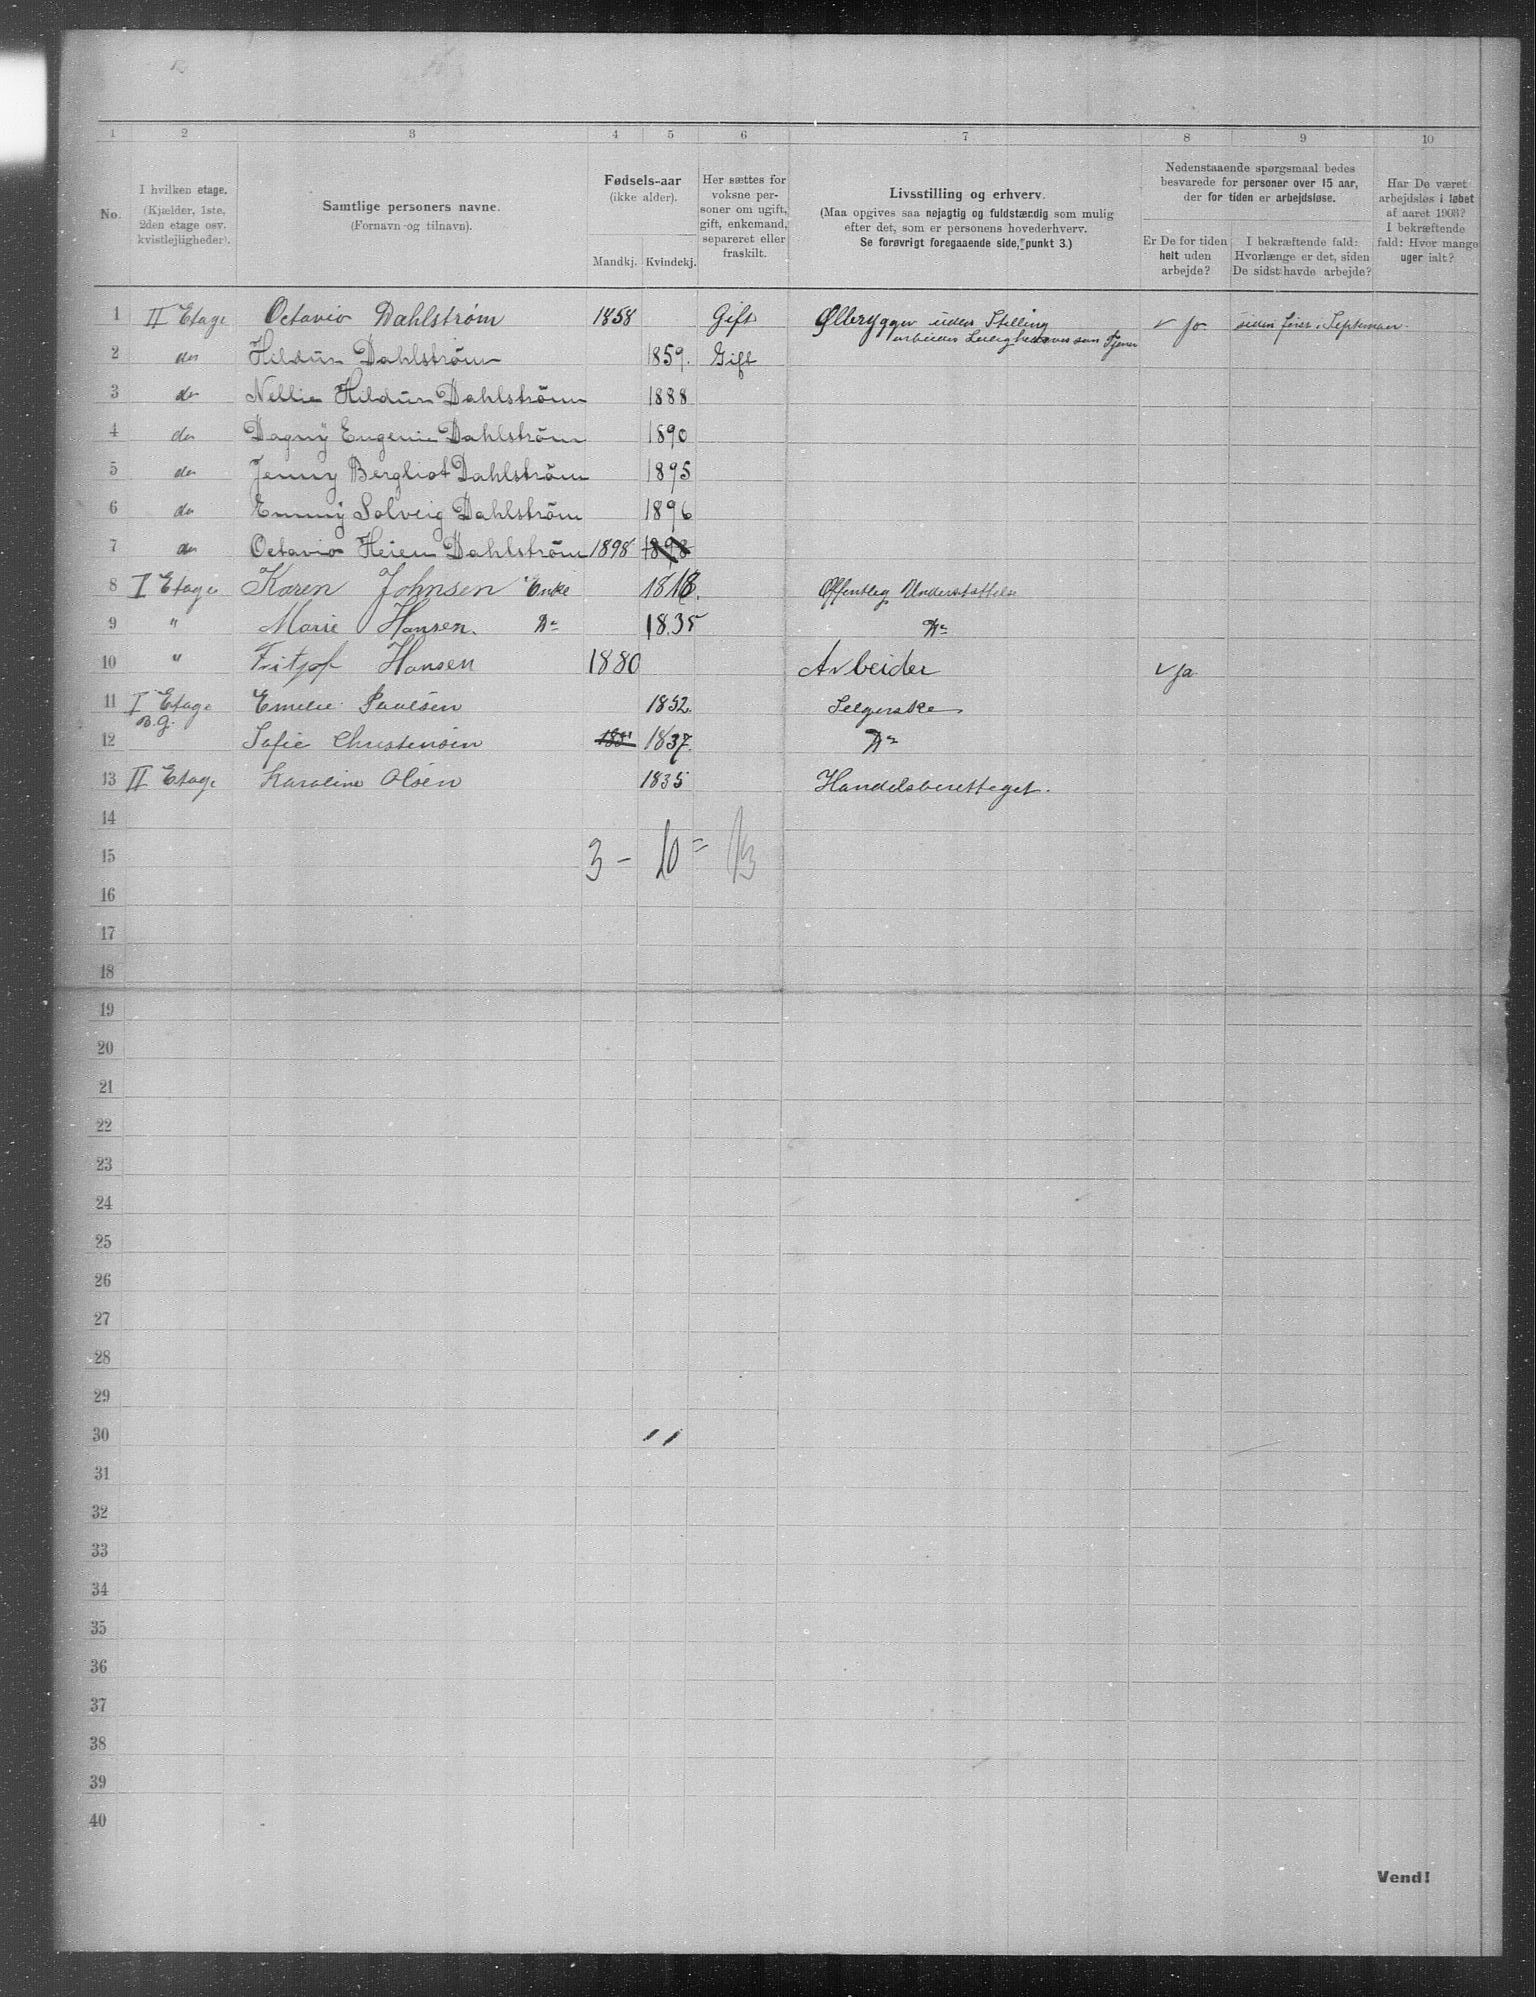 1 2 3 4 5 6 7 8 9 10
No.
I hvilken etage.
(Kjælder, 1ste,
2den etage osv.
kvistlejligheder).
Samtlige personers navne.
(Fornavn og tilnavn).
Fødsels-aar
(ikke alder).
Mandkj. Kvindekj.
Her sættes for
voksne per-
soner om ugift,
gift, enkemand,
separeret eller
fraskilt.
Livsstilling og erhverv.
(Maa opgives saa nøjagtig og fuldstærdig som mulig
efter det, som er personens hovederhverv.
Se forøvrigt foregaaende side, punkt 3.)
Nedenstaaende spørgsmaal bedes
besvarede for personer over 15 aar,
der for tiden er arbejdsløse.
Er De for tiden
helt uden
arbejde?
I bekræftende fald:
Hvorlænge er det, siden
De sidst havde arbejde?
Har De været
arbejdsløs i løbet
af aaret 1903?
I bekræftende
fald: Hvor mange
uger ialt?
1 II Etage Octavio Dahlstrøm 1858 Gift Ølbrygger uden Stilling ja siden feier. September
som Tjener
2 do Hildur Dahlström 1859. Gift
3 do Nellie Hildur Dahlström 1888
4 do Dagny Eugenie Dahlström 1890
5 do Jenny Bergliot Dahlström 1895
6 do Emmy Solveig Dahlström 1896
7 do Octavio Heien Dahlström 1898 1898
8 I Etage Karen Johnsen Enke 1818. Offentlig Understøttelse
9 " Marie Hansen. Do 1835 Do
10 " Fritjof Hansen 1880 Arbeider ja
11 I Etage Emelie Paulsen 1852. Selgerske
B.G.
12 Sofie Christensen 1837. Do
13 II Etage Karoline Olsen 1835 Handelsberettiget.
14
15 3 - 10 = 13
16
17
18
19
20
21
22
23
24
25
26
27
28
29
30
31
32
33
34
35
36
37
38
39
40
Vend!